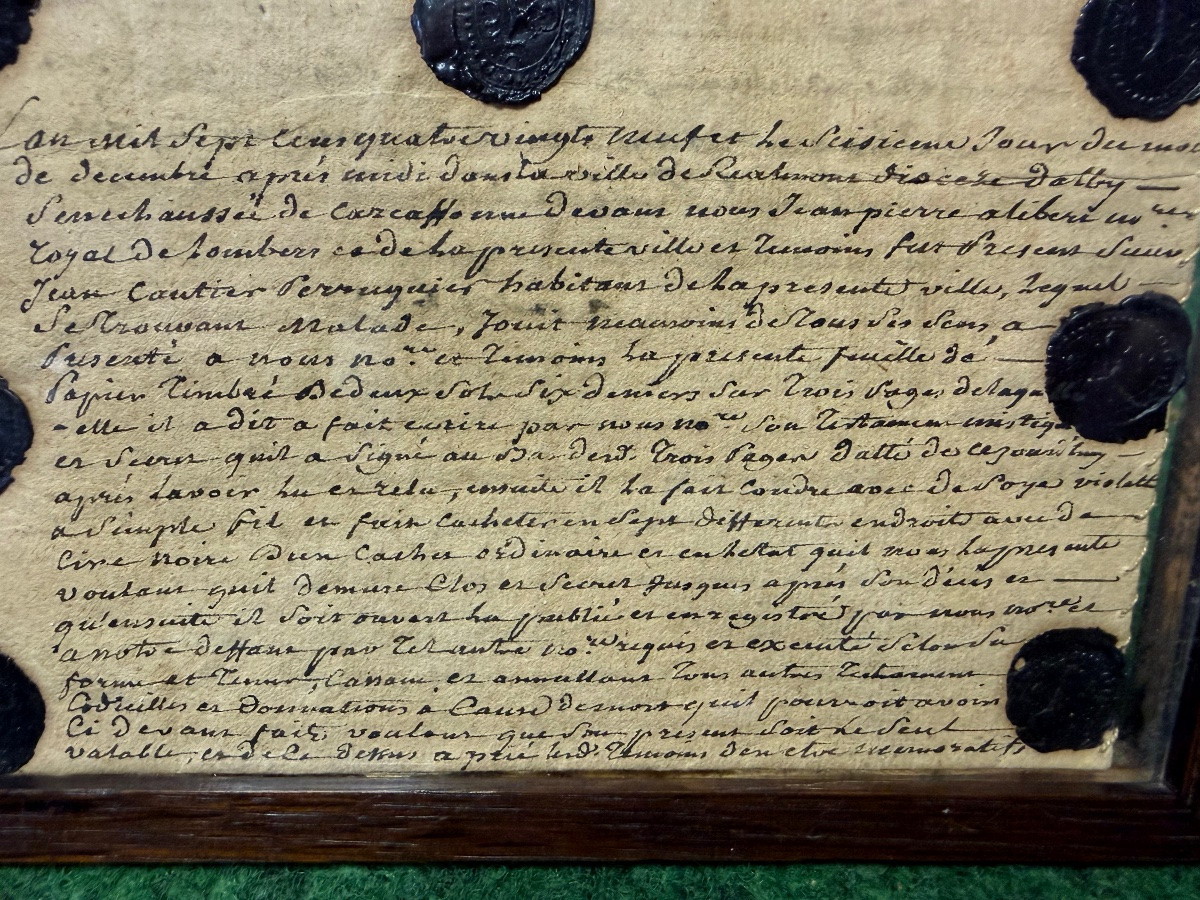 Lan mil Sept Cens quatre vingts neuf et le Seisieme Jour du moi
de decembre aprés midi dans la ville de Realmont dioceze dalby
Senechaussée de Carcassonne devant nous Jean pierre aliberi no.re
royal de Lombers ce de la presente ville et temoins fut Present Sieur
Jean Cautier Perruquier habitant de la presente ville, Lequel
Se trouvant Malade, Jouit neamoins de tous Ses Sens a
Presenté a nous no.re et temoins la presente feuille de
Papier timbré De deux Sols Six deniers Sur trois Pages de laqu
-elle il a dit a fait ecrire par nous no.re Son Testament mistiq
et Secret quil a Signé au Bas desd. trois Pages datté de cejourdhuy
aprés lavoir lu et relu, ensuite il la fait Coudre avec de Soye violett
a Simple fil et fait Cacheter en Sept differents endroits avec de
Cire noire Dun Cachet ordinaire et en letat quil nous la presente
voulant quil demure Clos et Secret Jusques aprés Son déces et
qu'ensuite il Soit ouvert la publié et enregistré par nous no.re et
a notre deffaut par tel autre no.re requis et executé Selon Sa
forme et teneur, Cassant et annullant tous autres testament
Codicilles et donnations a Cause de mort quil pourroit avoir
Ci devant fait, voulant que Son present Soit le Seul
valable, et de Ce dessus a prié lesd. temoins den etre memoratifs